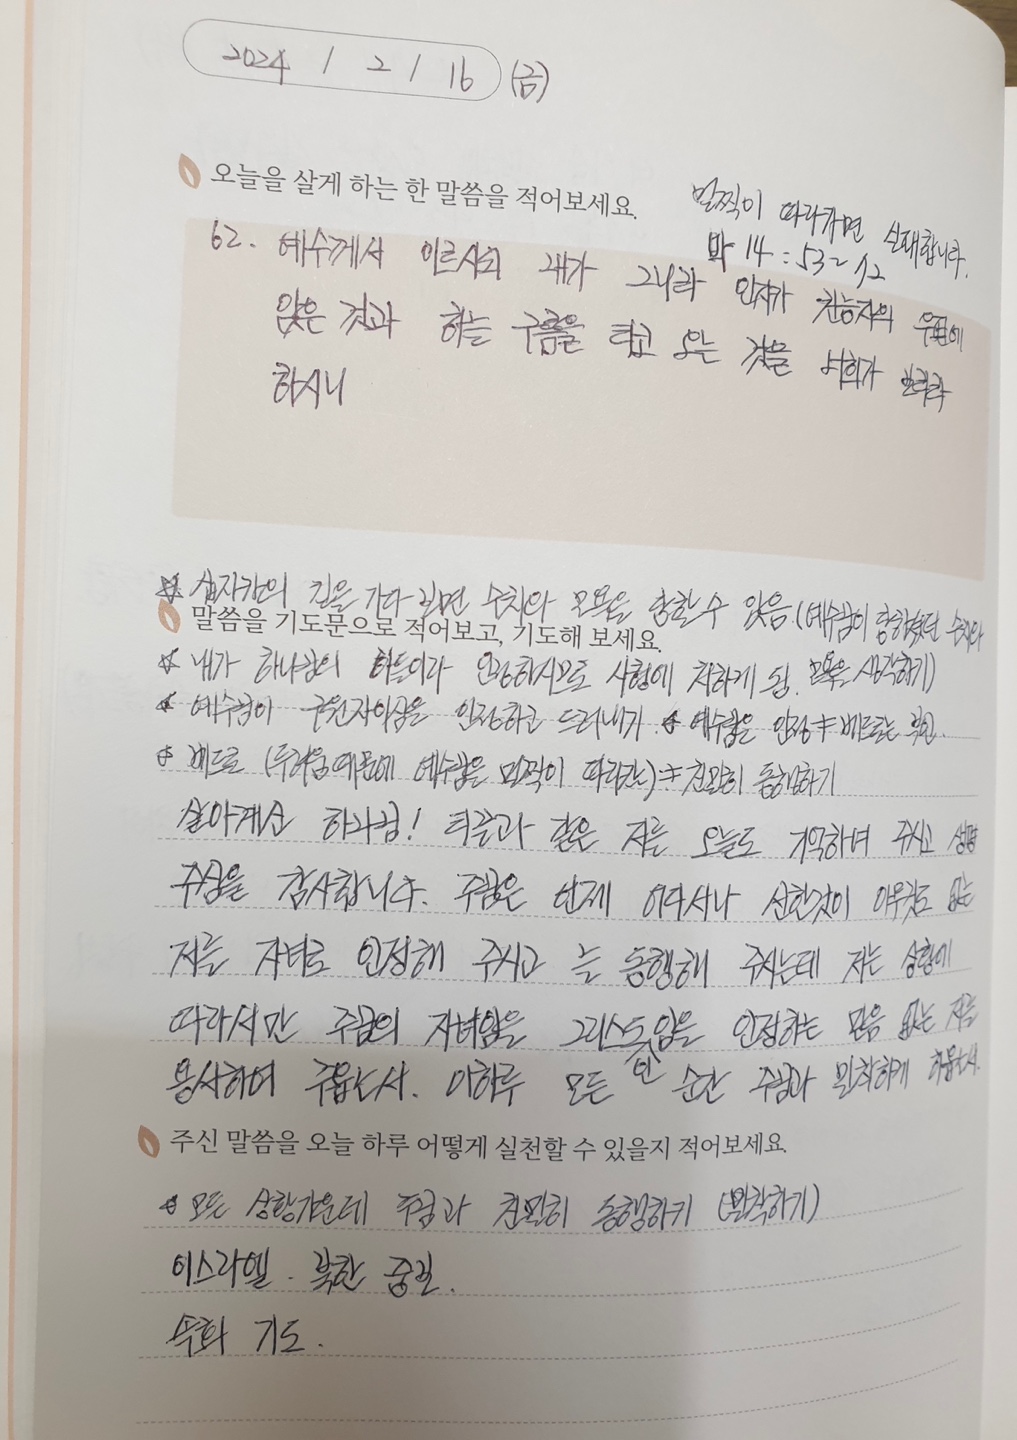 2024 / 2 / 16 (금)
오늘을 살게 하는 한 말씀을 적어보세요.
멀찍이 따라가면 실패합니다.
막 14:53~72
62. 예수께서 이르시되 내가 그니라 인자가 권능자의 우편에
앉은 것과 하늘 구름을 타고 오는 것을 너희가 보리라
하시니
십자가의 길을 가다 보면 수치와 모욕을 당할 수 있음.(예수님이 당하셨던 수치와
말씀을 기도문으로 적어보고, 기도해 보세요.
내가 하나님의 아들이라 인정하시므로 사형에 처하게 됨. 모욕을 생각하기)
예수님이 구원자이심을 인정하고 드러내기. 예수님은 인정 ≠ 베드로는 부인.
베드로 (두려움 때문에 예수님을 멀찍이 따라간) ≠ 친밀히 동행하기
살아계신 하나님! 티끌과 같은 저를 오늘도 기억하여 주시고 생명
주심을 감사합니다. 주님은 언제 어디서나 선한것이 아무것도 없는
저를 자녀로 인정해 주시고 늘 동행해 주시는데 저는 상황에
따라서만 주님의 자녀임을 그리스도인임을 인정하는 믿음 없는 저를
용서하여 주옵소서. 이하루 모든 순간 주님과 밀착하게 하옵소서.
주신 말씀을 오늘 하루 어떻게 실천할 수 있을지 적어보세요.
모든 상황가운데 주님과 친밀히 동행하기 (밀착하기)
이스라엘. 북한 중보.
수화 기도.